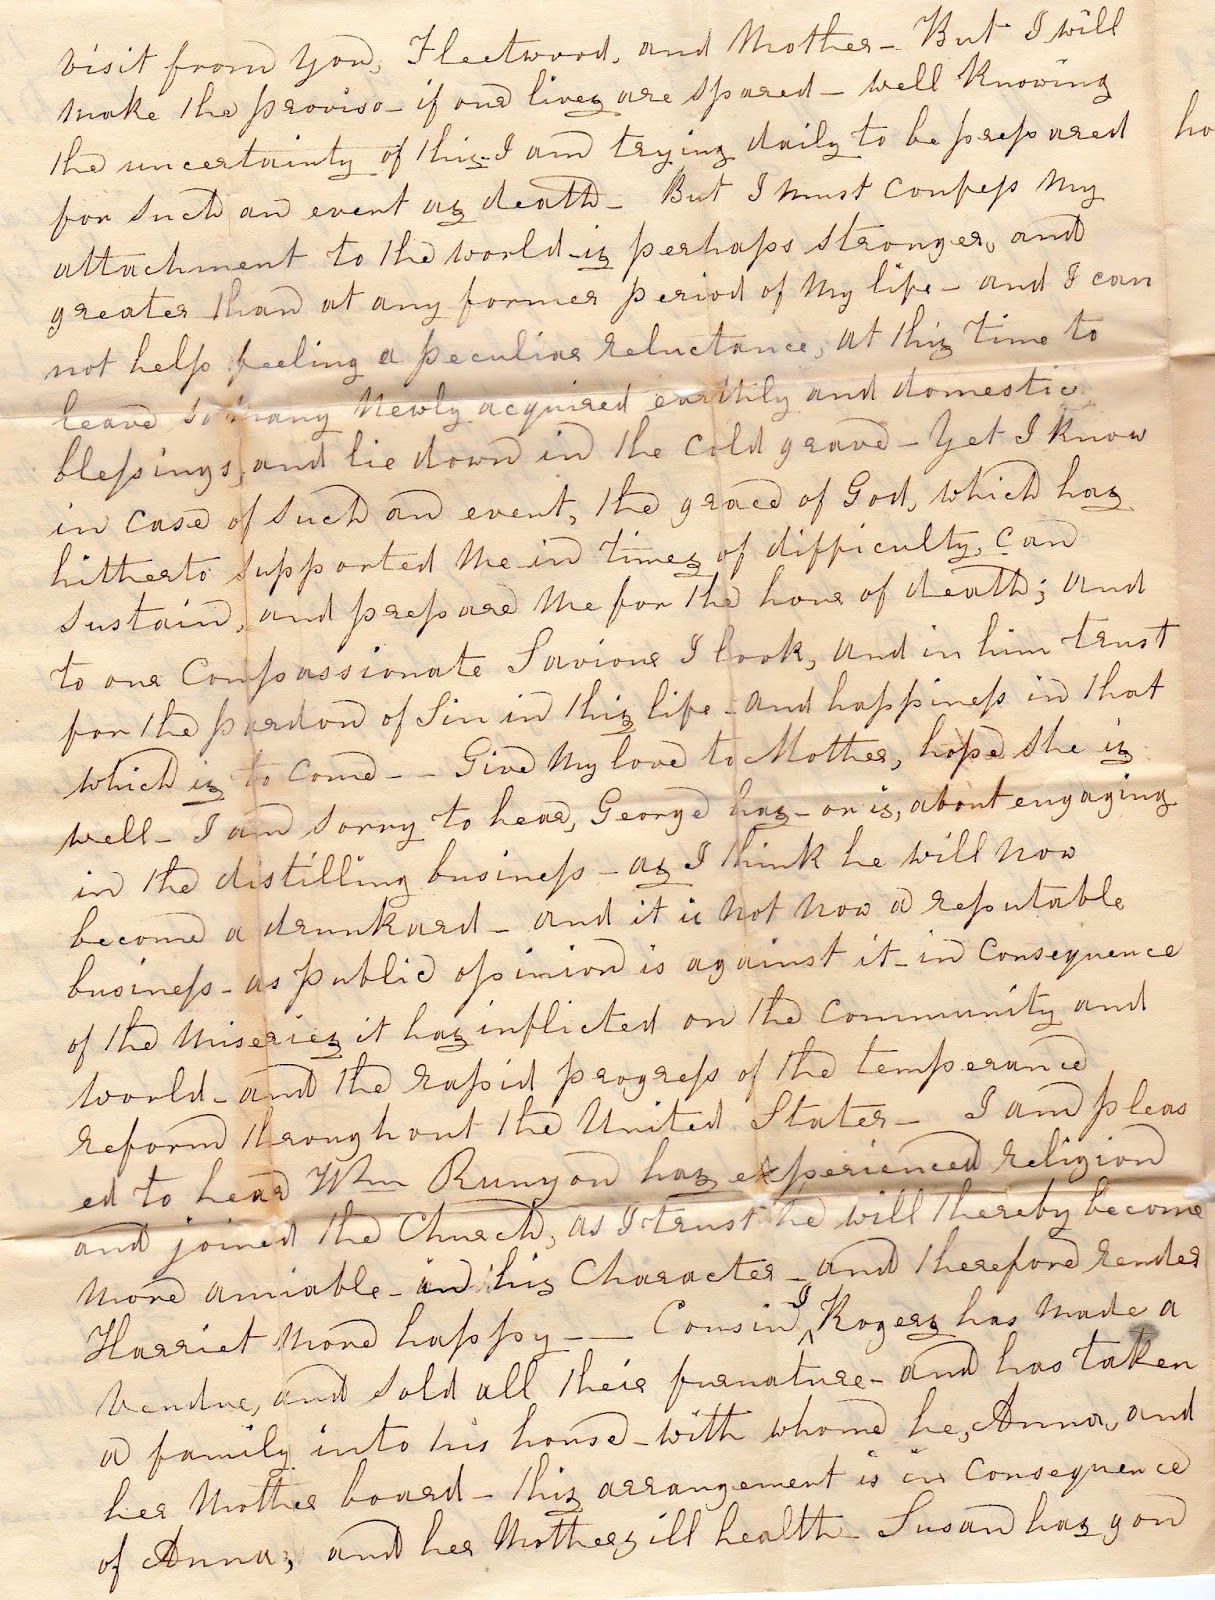 visit from you, Fleetwood, and Mother - But I will
make the proviso - if our lives are spared - well knowing
the uncertainty of this - I am trying daily to be prepared
ho
for such an event as death - But I must confess my
attachment to the world - is perhaps stronger, and
greater than at any former period of my life - and I can
not help feeling a peculiar reluctance, at this time to
leave so many newly acquired earthly and domestic
blessings, and lie down in the cold grave - Yet I know
in case of such an event, the grace of God, which has
hitherto supported me in times of difficulty, can
sustain, and prepare me for the hour of death; and
to our Compassionate Saviour I look, and in him trust
for the pardon of Sin in this life - and happiness in that
which is to come - - Give my love to Mother, hope she is
well - I am sorry to hear, George has - or is, about engaging
in the distilling business - as I think he will now
become a drunkard - and it is not now a reputable
business - as public opinion is against it - in consequence
of the miseries it has inflicted on the community and
world - and the rapid progress of the temperance
reform throughout the United States - I am pleas
ed to hear Wm Runyon has experienced religion
and joined the Church, as I trust he will thereby become
more amiable - in his Character - and therefore render
Harriet more happy - - Cousin J Rogers has made a
vendue, and sold all their furnature - and has taken
a family into his house - with whome he, Anna, and
her Mother board - this arrangement is in consequence
of Anna, and her Mothers ill health - Susan has gon